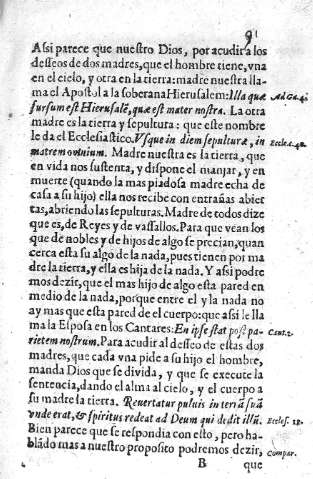 9
Assi parece que nuestro Dios, por acudir a los
desseos de dos madres, que el hombre tiene, vna
en el cielo, y otra en la tierra: madre nuestra lla-
ma el Apostol a la soberana Hierusalem: Illa quæ Ad Ga. 4.
sursum est Hierusalē, quæ est mater nostra. La otra
madre es la tierra y sepultura: que este nombre
le da el Ecclesiastico. Vsque in diem sepulturæ, in Eccle. c. 40.
matrem omnium. Madre nuestra es la tierra, que
en vida nos sustenta, y dispone el manjar, y en
muerte (quando la mas piadosa madre echa de
casa a su hijo) ella nos recibe con entrañas abier
tas, abriendo las sepulturas. Madre de todos dize
que es, de Reyes y de vassallos. Para que vean los
que de nobles y de hijos de algo se precian, quan
cerca esta su algo de la nada, pues tienen por ma
dre la tierra, y ella es hija de la nada. Y assi podre
mos dezir, que el mas hijo de algo esta pared en
medio de la nada, porque entre el y la nada no
ay mas que esta pared de el cuerpo: que assi le lla
ma la Esposa en los Cantares: En ipse stat post pa- Cant. 2.
rietem nostrum. Para acudir al desseo de estas dos
madres, que cada vna pide a su hijo el hombre,
manda Dios que se divida, y que se execute la
sentencia, dando el alma al cielo, y el cuerpo a
su madre la tierra. Reuertatur puluis in terrā suā
vnde erat, & spiritus redeat ad Deum qui dedit illū. Eccles. 12.
Bien parece que se respondia con esto, pero ha-
blādo mas a nuestro proposito podremos dezir, Compar.
B que